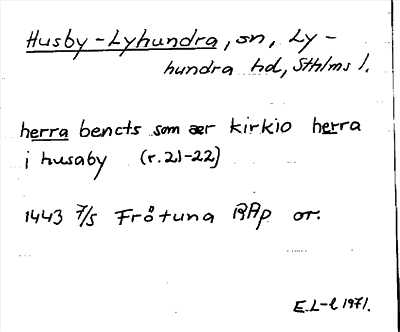 Husby-Lyhundra, sn, Ly-
hundra hd, Sthlms l.
herra bencts som ær kirkio herra
i husaby (r. 21-22)
1443 7/5 Frötuna RAp or.
E.L-l 1971.